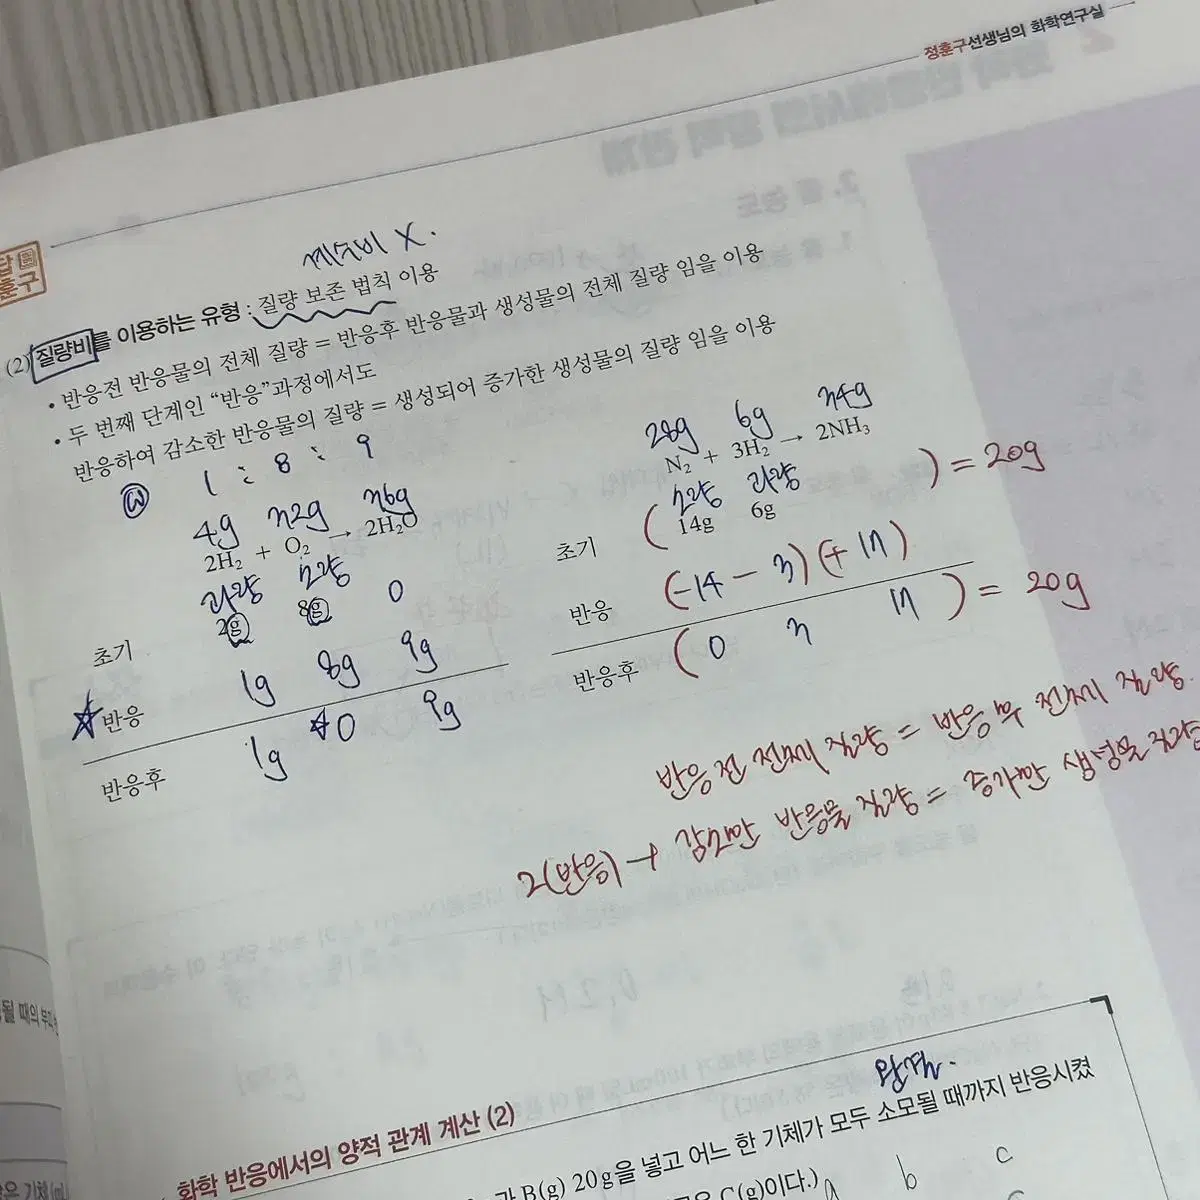 정훈구선생님의 화학연구실
계수비 X.
(2) 질량비를 이용하는 유형 : 질량 보존 법칙 이용
• 반응전 반응물의 전체 질량 = 반응후 반응물과 생성물의 전체 질량 임을 이용
• 두 번째 단계인 “반응”과정에서도
반응하여 감소한 반응물의 질량 = 생성되어 증가한 생성물의 질량 임을 이용
1 : 8 : 9
4g
2H₂ + O₂ → 2H₂O
과량 소량
초기 2g 8g 0
반응 1g 8g 9g
반응후 1g 0 9g
28g 6g
N₂ + 3H₂ → 2NH₃
소량 과량
초기 ( 14g 6g ) = 20g
반응 (-14 - 3) (+ 17)
반응후 ( 0 3 17 ) = 20g
반응 전 전체 질량 = 반응 후 전체 질량.
2(반응) → 감소한 반응물 질량 = 증가한 생성물 질량
화학 반응에서의 양적 관계 계산 (2)
완결.
B(g) 20g을 넣고 어느 한 기체가 모두 소모될 때까지 반응시켰
C(g)이다.)
b c
될 때의